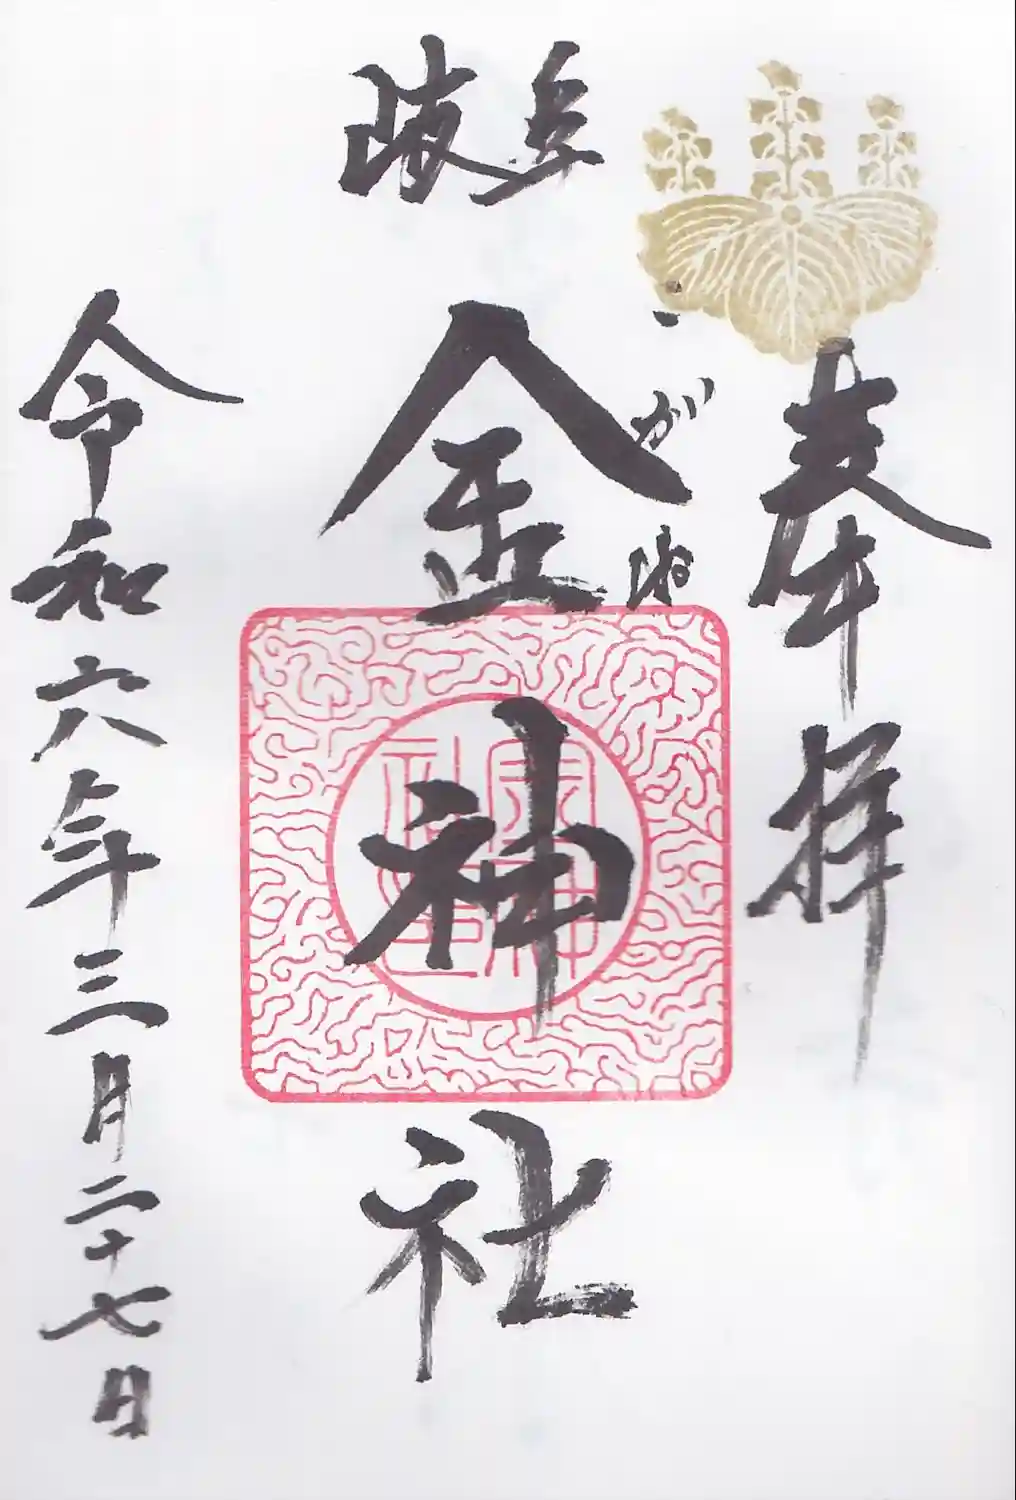 奉拝
岐阜
金神社
こがね
令和六年三月二十七日